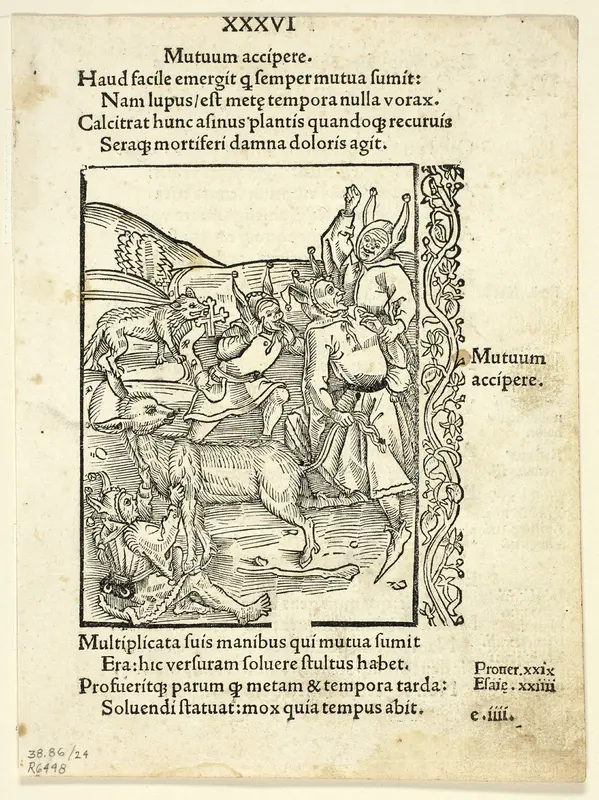 XXXVI
Mutuum accipere.
Haud facile emergit q̃ semper mutua sumit:
Nam lupus/est metę tempora nulla vorax.
Calcitrat hunc asinus plantis quandoqꝫ recuruis
Seraqꝫ mortiferi damna doloris agit.
Mutuum
accipere.
Multiplicata suis manibus qui mutua sumit
Era: hic versuram soluere stultus habet.
Profueritqꝫ parum q̃ metam & tempora tarda:
Soluendi statuat: mox quia tempus abit.
Prouer. xxix
Esaie. xxiiii
e.iiii.
38.86/24
R6448